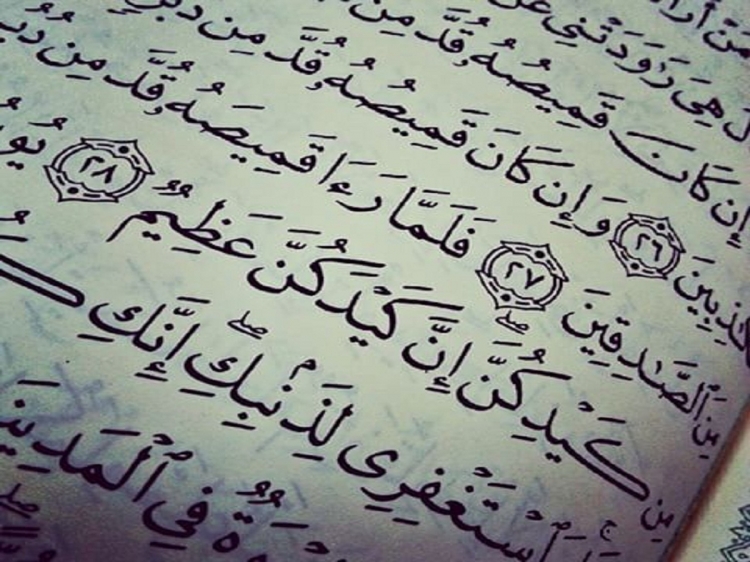 مَنْ أَرَا
هِىَ رَٰوَدَتْنِى عَن
إِن كَانَ قَمِيصُهُۥ قُدَّ مِن
ذِبِينَ ٢٦ وَإِن كَانَ قَمِيصُهُۥ قُدَّ مِن دُبُرٍ
مِنَ ٱلصَّٰدِقِينَ ٢٧ فَلَمَّا رَءَا قَمِيصَهُۥ قُدَّ مِن دُبُ
مِن كَيْدِكُنَّ ۖ إِنَّ كَيْدَكُنَّ عَظِيمٌ ٢٨ يُو
ٱسْتَغْفِرِى لِذَنۢبِكِ ۖ إِنَّكِ كُ
ةٌ فِى ٱلْمَدِينَ